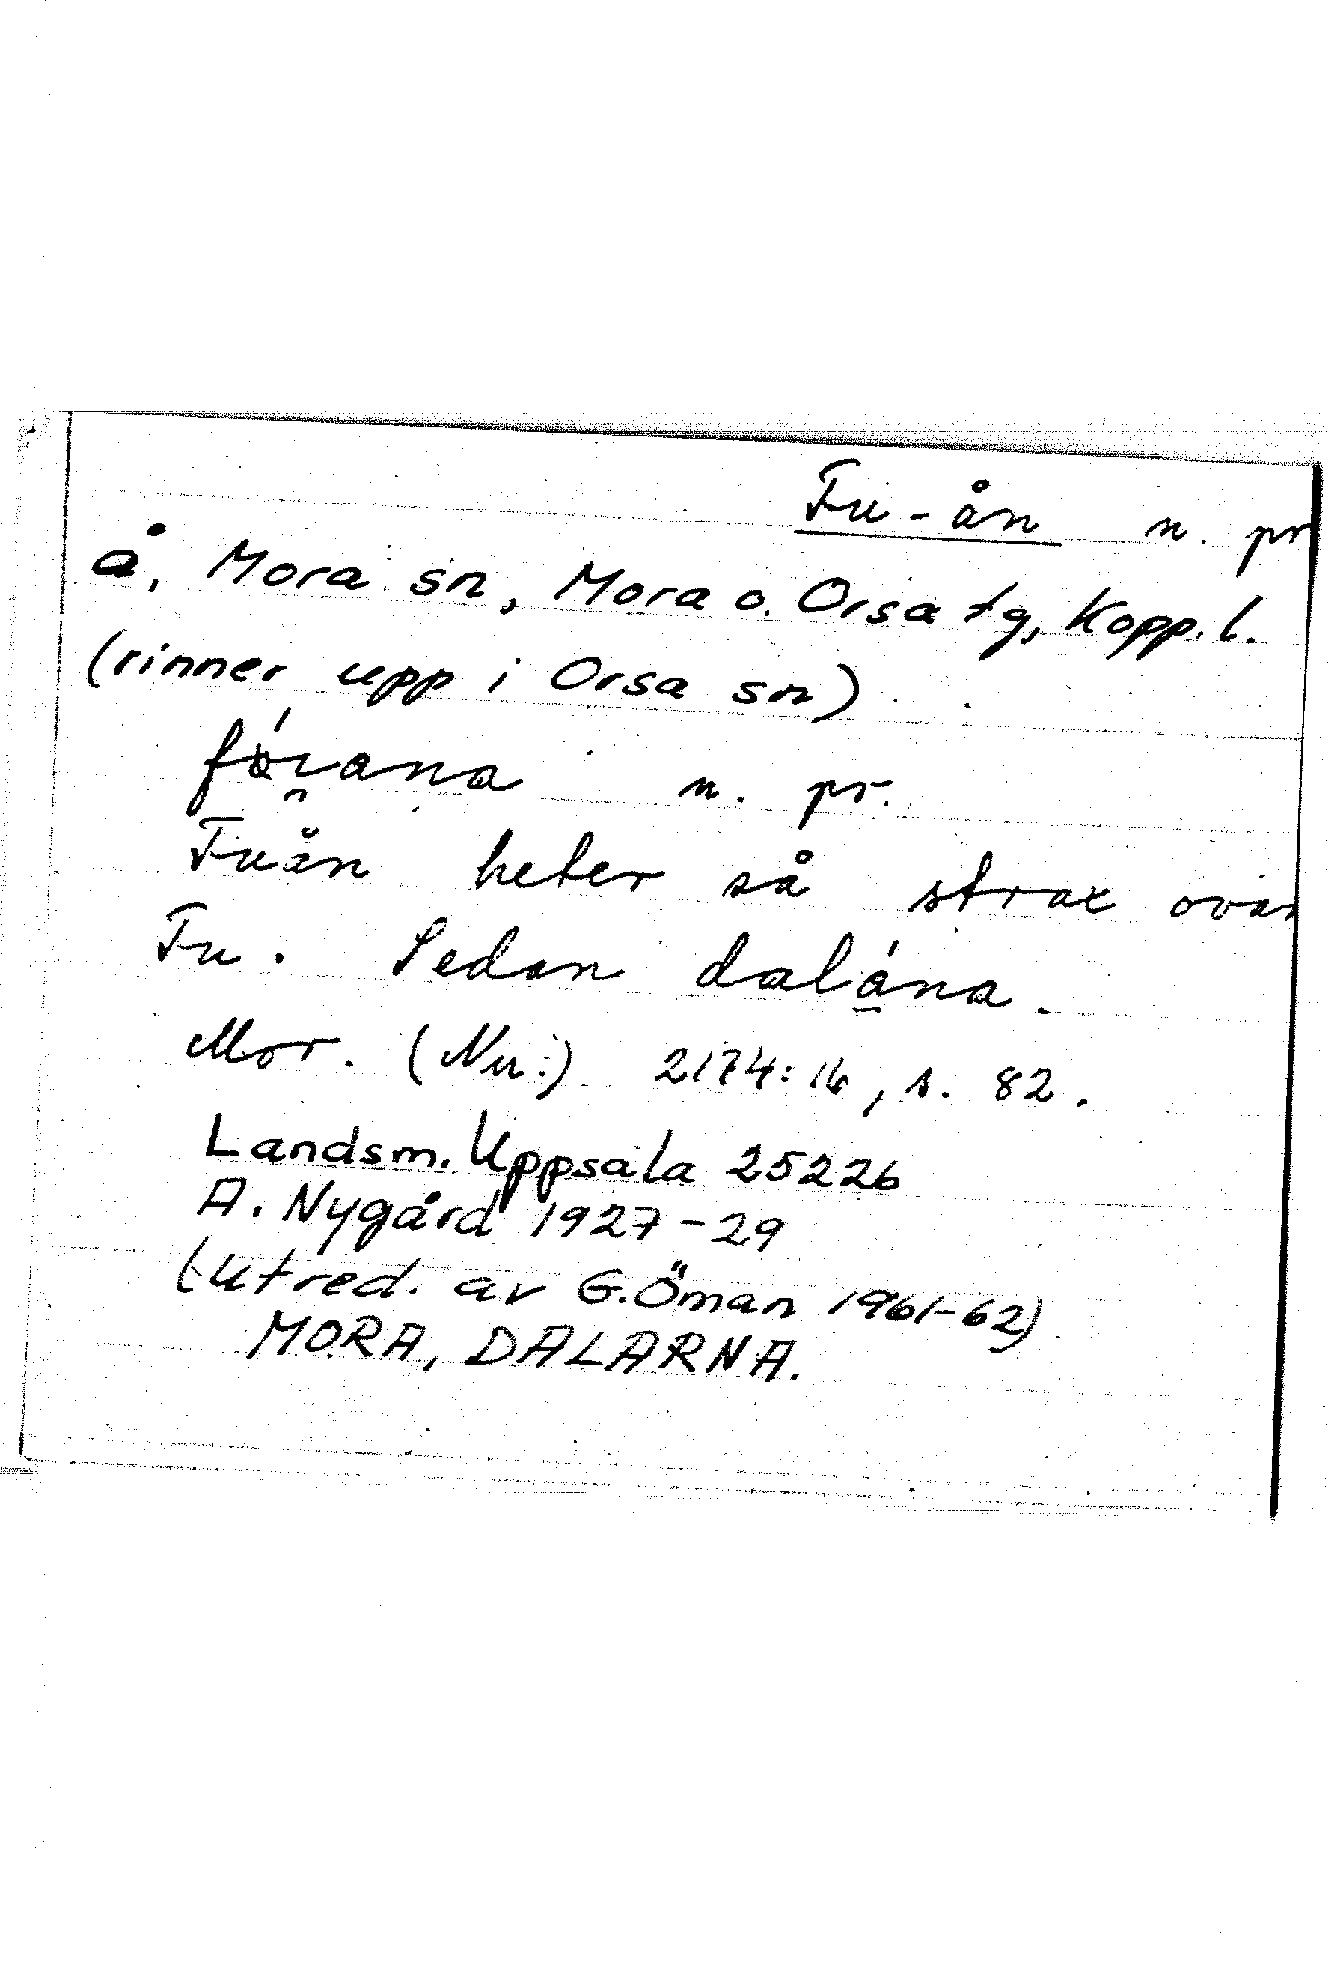 Fu-ån n. pr
å, Mora sn, Mora o. Orsa tg, Kopp. l.
(rinner upp i Orsa sn)
n. pr.
Fuån heter så strax ovan
Fu. Sedan dalána.
Mor. (Nu:) 2174:16, s. 82.
Landsm. Uppsala 25226
A. Nygård 1927-29
(Utred. av G. Öman 1961-62)
MORA, DALARNA.